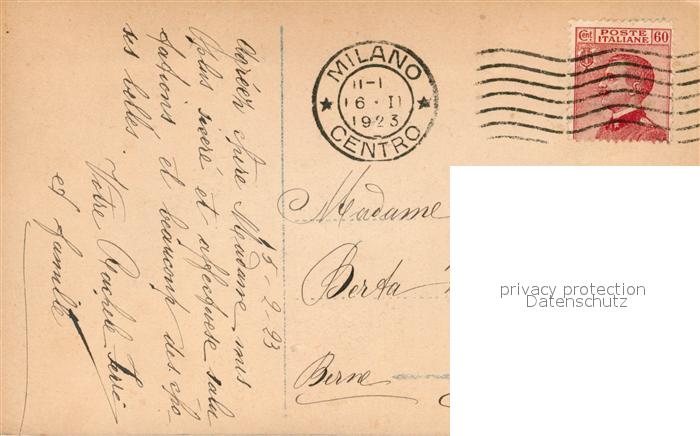 15-2-23
Agréez chère Madame mes
plus sinceré et affectueuse salu
tations et beaucoup des cho
ses belles.
Votre Rachele Ferré
et famille
MILANO
11-1
16·II
1923
CENTRO
Cent. POSTE ITALIANE 60
Madame
Berta
Berne
privacy protection
Datenschutz